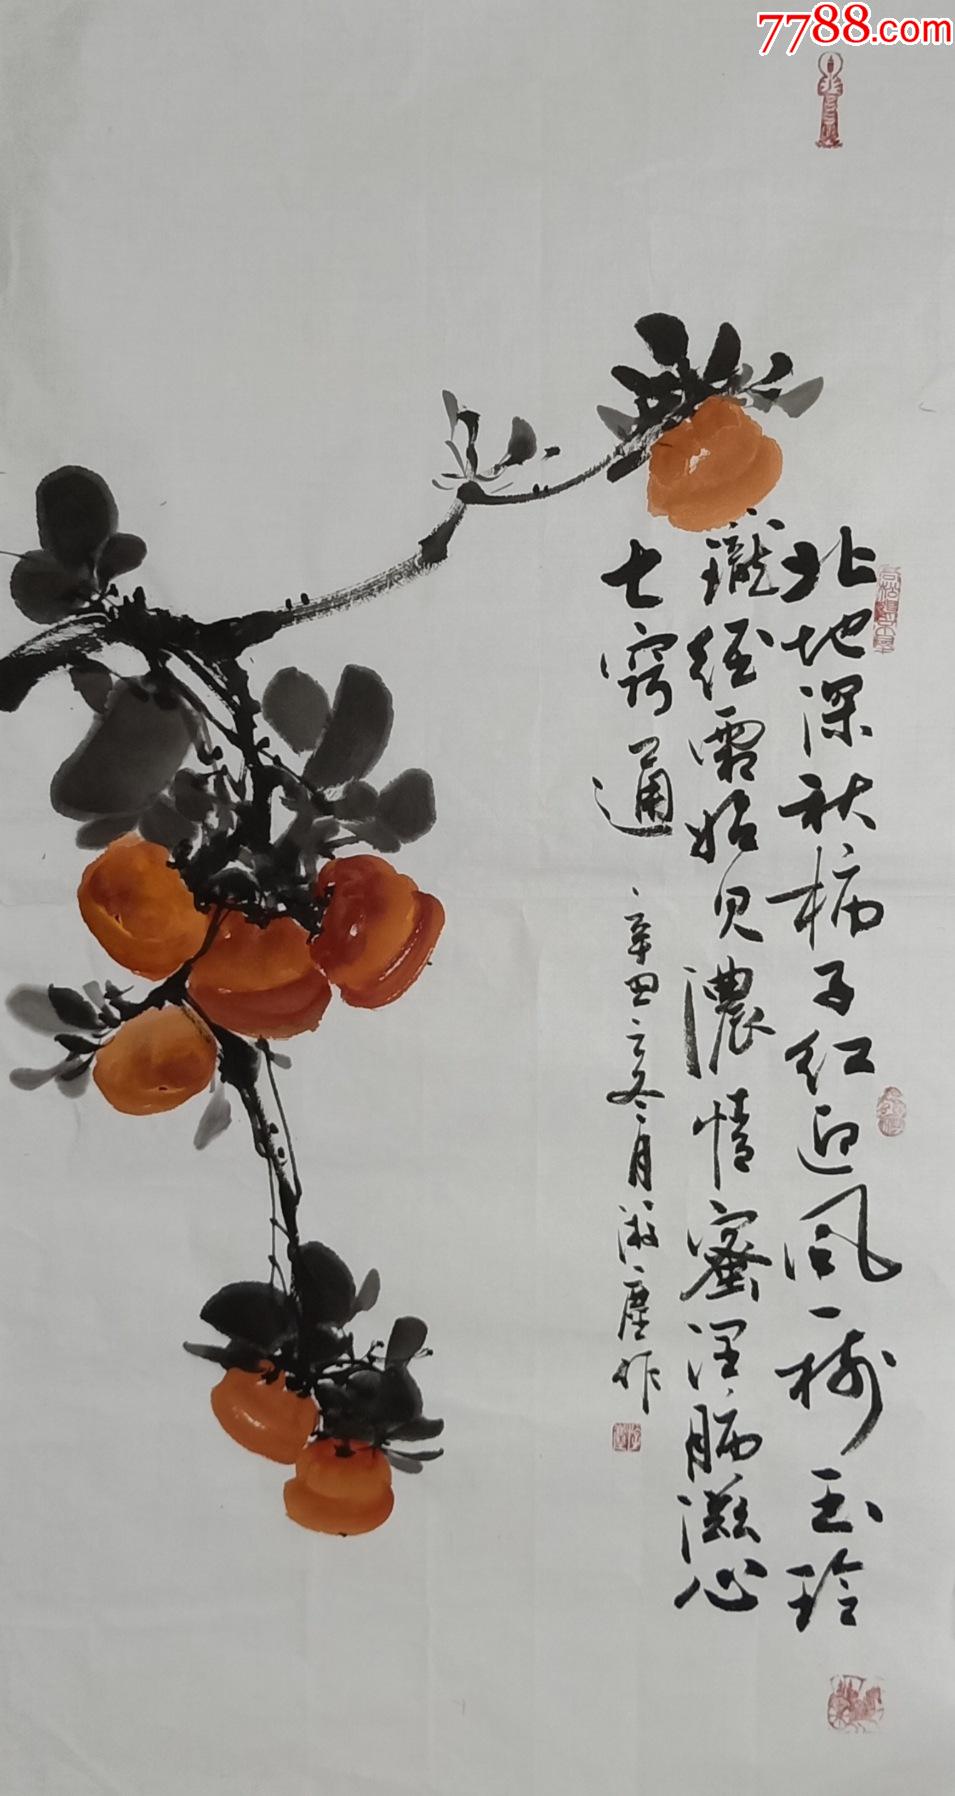 7788.com
北地深秋柿子红迎风一树玉玲
珑经霜始见浓情蜜润肺滋心
七窍通
辛丑之冬月游尘作